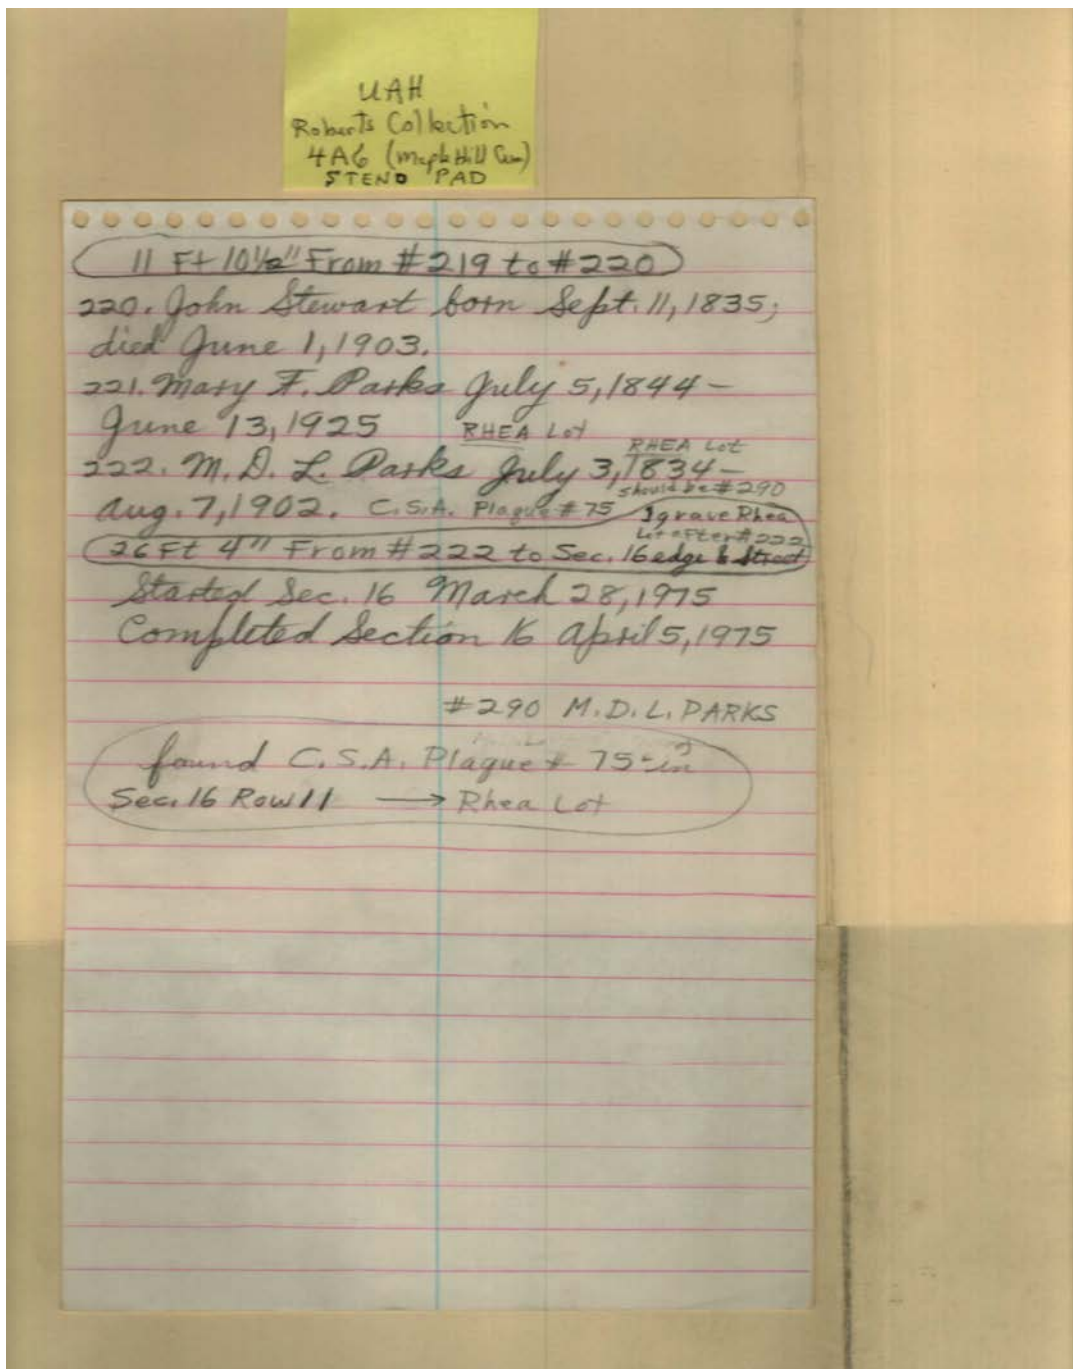 UAH
Roberts Collection
4A6 (Maple Hill Cem)
STENO PAD
11 Ft 10½" From #219 to #220
220. John Stewart born Sept. 11, 1835;
died June 1, 1903.
221. Mary F. Parks July 5, 1844 –
June 13, 1925 RHEA Lot
RHEA Lot
222. M. D. L. Parks July 3, 1834 –
should be #290
Aug. 7, 1902. C.S.A. Plaque #75
1 grave Rhea
Lot after #222
26 Ft 4" From #222 to Sec. 16 edge & Street
Started Sec. 16 March 28, 1975
Completed Section 16 April 5, 1975
#290 M.D.L. PARKS
found C.S.A. Plaque # 75 in
Sec. 16 Row 11 → Rhea Lot